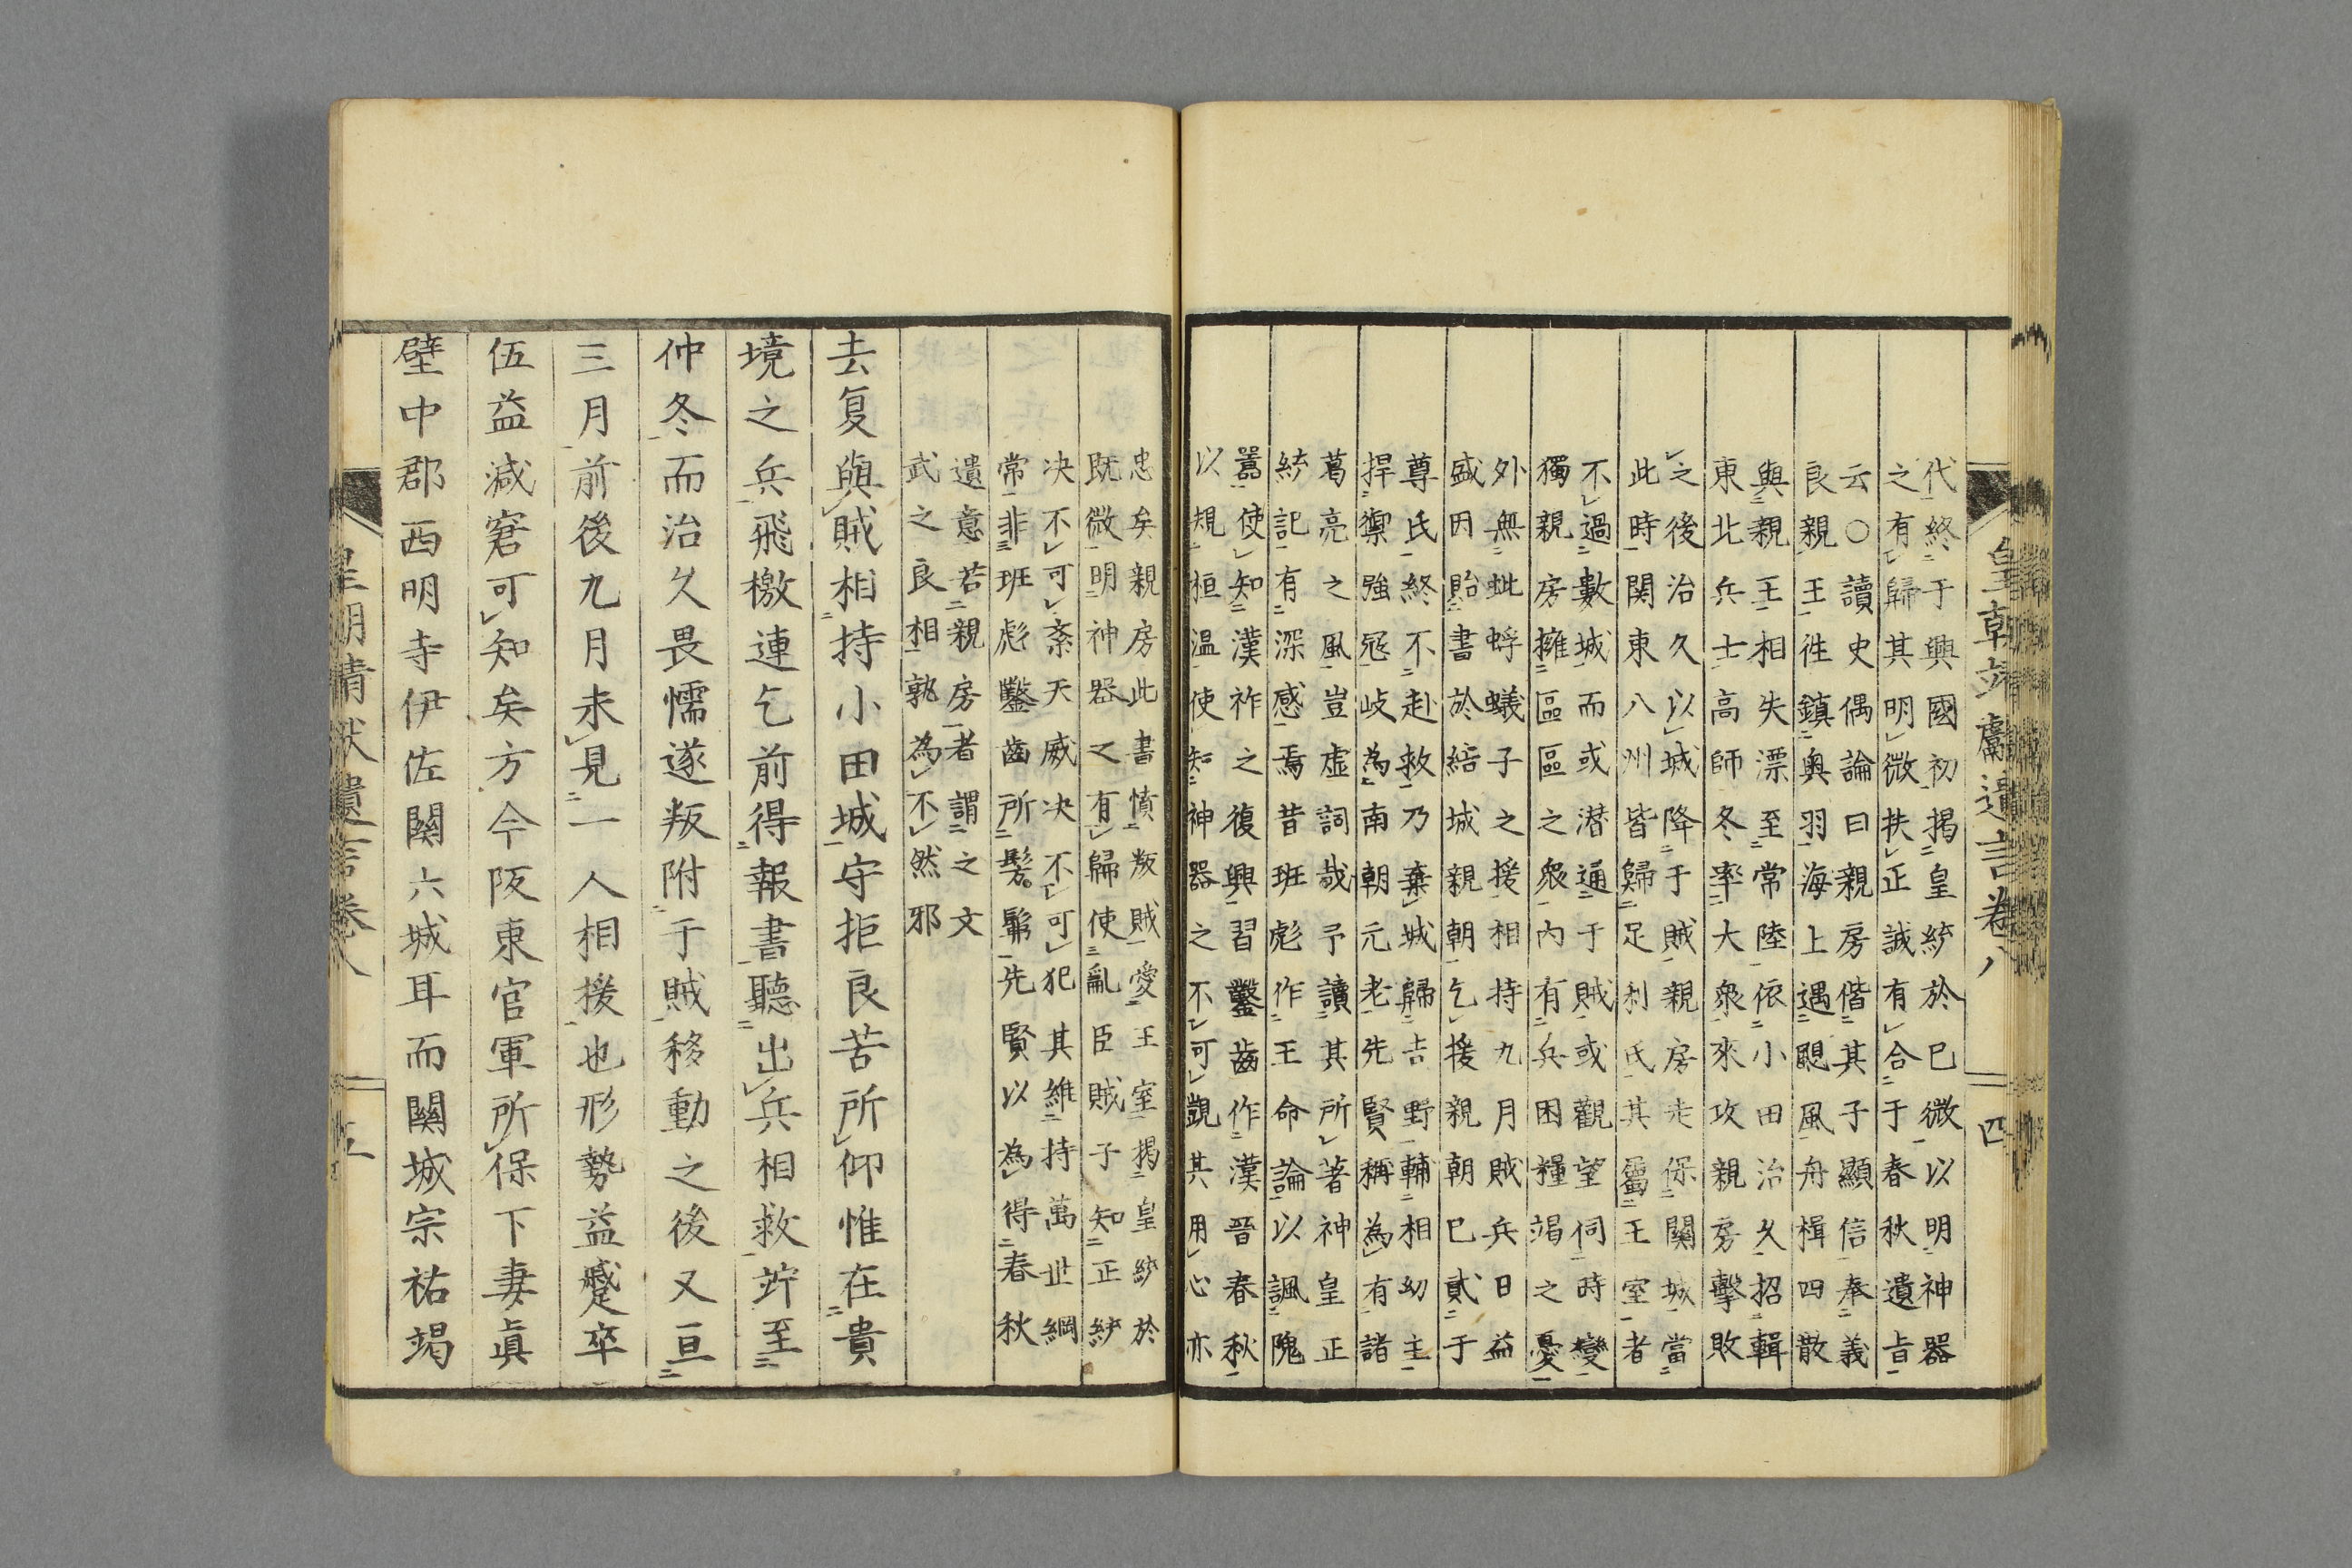 皇朝靖獻遺言卷八
四
代終于興國初揭皇統於已微以明神器
之有歸其明微扶正誠有合于春秋遺旨
云○讀史偶論曰親房偕其子顯信奉義
良親王徃鎮奥羽海上遇颶風舟楫四散
與親王相失漂至常陸依小田治久招輯
東北兵士高師冬率大衆來攻親房擊敗
之後治久以城降于賊親房走保關城當
此時關東八州皆歸足利氏其屬王室者
不過數城而或潜通于賊或觀望伺時變
獨親房擁區區之衆内有兵困糧竭之憂
外無蚍蜉蟻子之援相持九月賊兵日益
盛因貽書於結城親朝乞援親朝已貳于
尊氏終不赴救乃棄城歸吉野輔相幼主
捍禦強冦歧為南朝元老先賢稱為有諸
葛亮之風豈虚詞哉予讀其所著神皇正
統記有深感焉昔班彪作王命論以諷隗
囂使知漢祚之復興習鑿齒作漢晉春秋
以規桓温使知神器之不可覬其用心亦
忠矣親房此書憤叛賊愛王室揭皇統於
既微明神器之有歸使亂臣賊子知正統
决不可紊天威决不可犯其維持萬世綱
常非班彪鑿齒所髣髴先賢以為得春秋
遺意若親房者謂之文
武之良相孰為不然邪
去复與賊相持小田城守拒良苦所仰惟在貴
境之兵飛檄連乞前得報書聽出兵相救竚至
仲冬而治久畏懦遂叛附于賊移動之後又亘
三月前後九月未見一人相援也形勢益蹙卒
伍益減窘可知矣方今阪東官軍所保下妻眞
壁中郡西明寺伊佐關六城耳而關城宗祐竭
皇朝靖獻遺言卷八
五